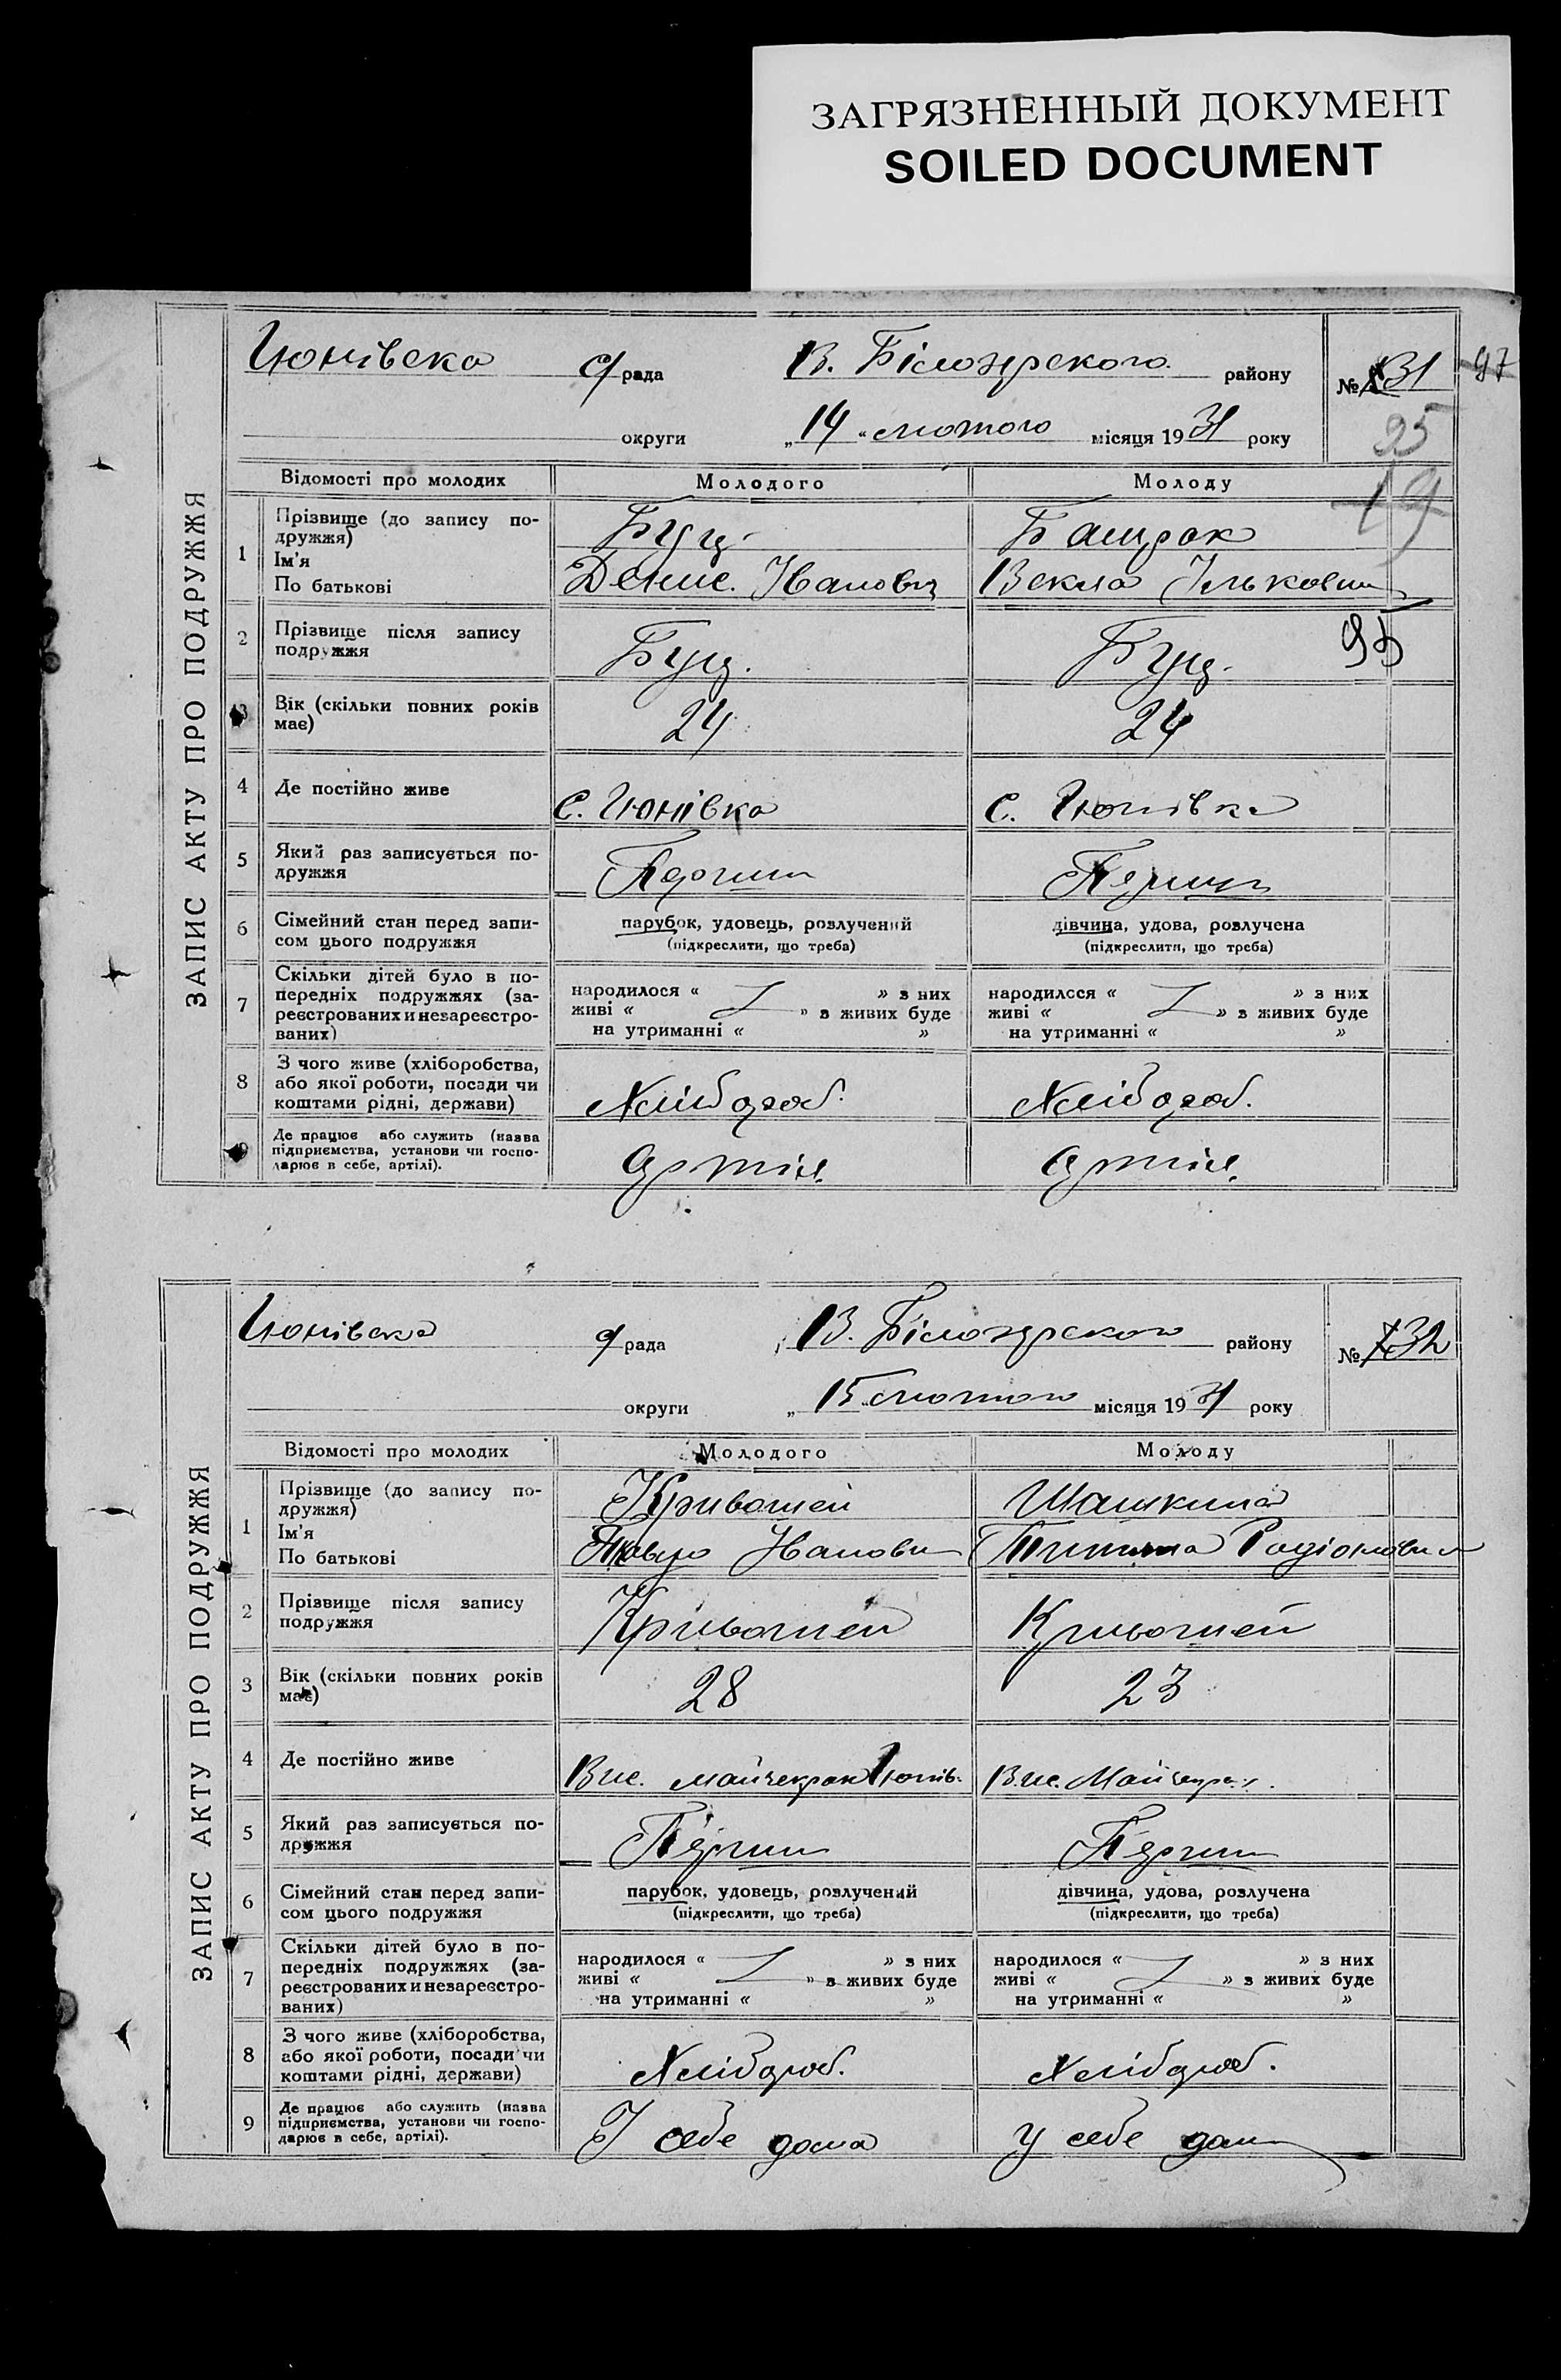 ЗАГРЯЗНЕННЫЙ ДОКУМЕНТ
SOILED DOCUMENT
ЗАПИС АКТУ ПРО ПОДРУЖЖЯ
рада В. Білозерского району № 31 97
округи „14“ лютого місяця 1931 року 95
19
Відомості про молодих Молодого Молоду
1 Прізвище (до запису по-
дружжя) Буц Башрак
Ім'я
По батькові Денис. Іванович Векла Ількович
2 Прізвище після запису
подружжя Буц. Буц. 95
3 Вік (скільки повних років
має) 24 24
4 Де постійно живе с. с.
5 Який раз записується по-
дружжя Перший Перший
6 Сімейний стан перед запи-
сом цього подружжя парубок, удовець, розлучений дівчина, удова, розлучена
(підкреслити, що треба) (підкреслити, що треба)
7 Скільки дітей було в по-
передніх подружжях (за-
реєстрованих и незареєстро-
ваних) народилося « » з них народилося « » з них
живі « » з живих буде живі « » з живих буде
на утриманні « » на утриманні « »
8 З чого живе (хліборобства,
або якої роботи, посади чи
коштами рідні, держави) Хлібороб. Хлібороб.
9 Де працює або служить (назва
підприємства, установи чи госпо-
дарює в себе, артілі). Артіл. Артіл.
ЗАПИС АКТУ ПРО ПОДРУЖЖЯ
рада В. Білозерского району № 32
округи „15“ лютого місяця 1931 року
Відомості про молодих Молодого Молоду
1 Прізвище (до запису по-
дружжя) Кривошей Шашкина
Ім'я
По батькові Іванович Родіонович
2 Прізвище після запису
подружжя Кривошей Кривошей
3 Вік (скільки повних років
має) 28 23
4 Де постійно живе Вис. Вис.
5 Який раз записується по-
дружжя Перший Перший
6 Сімейний стан перед запи-
сом цього подружжя парубок, удовець, розлучений дівчина, удова, розлучена
(підкреслити, що треба) (підкреслити, що треба)
7 Скільки дітей було в по-
передніх подружжях (за-
реєстрованих и незареєстро-
ваних) народилося « » з них народилося « » з них
живі « » з живих буде живі « » з живих буде
на утриманні « » на утриманні « »
8 З чого живе (хліборобства,
або якої роботи, посади чи
коштами рідні, держави) Хлібороб. Хлібороб.
9 Де працює або служить (назва
підприємства, установи чи госпо-
дарює в себе, артілі). У себе дома у себе дома